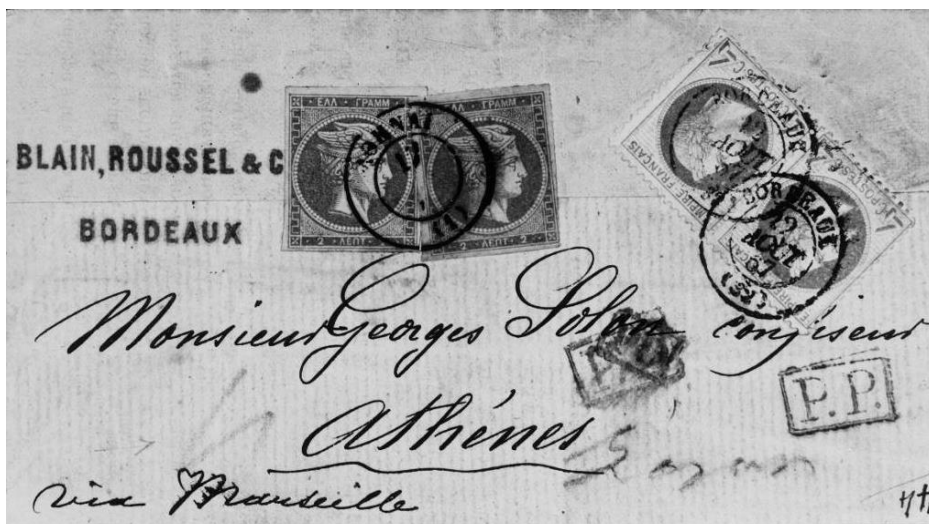 BLAIN, ROUSSEL & C
BORDEAUX
ΕΛΛ · ΓΡΑΜΜ
2 ΛΕΠΤ 2
ΕΛΛ · ΓΡΑΜΜ
2 ΛΕΠΤ 2
ΑΘΗΝΑΙ
EMPIRE FRANÇAIS
BORDEAUX
AOUT
BORDEAUX
12
AOUT
67
(32)
Monsieur Georges Solon Confiseur
P.P.
Athénes
via Marseille